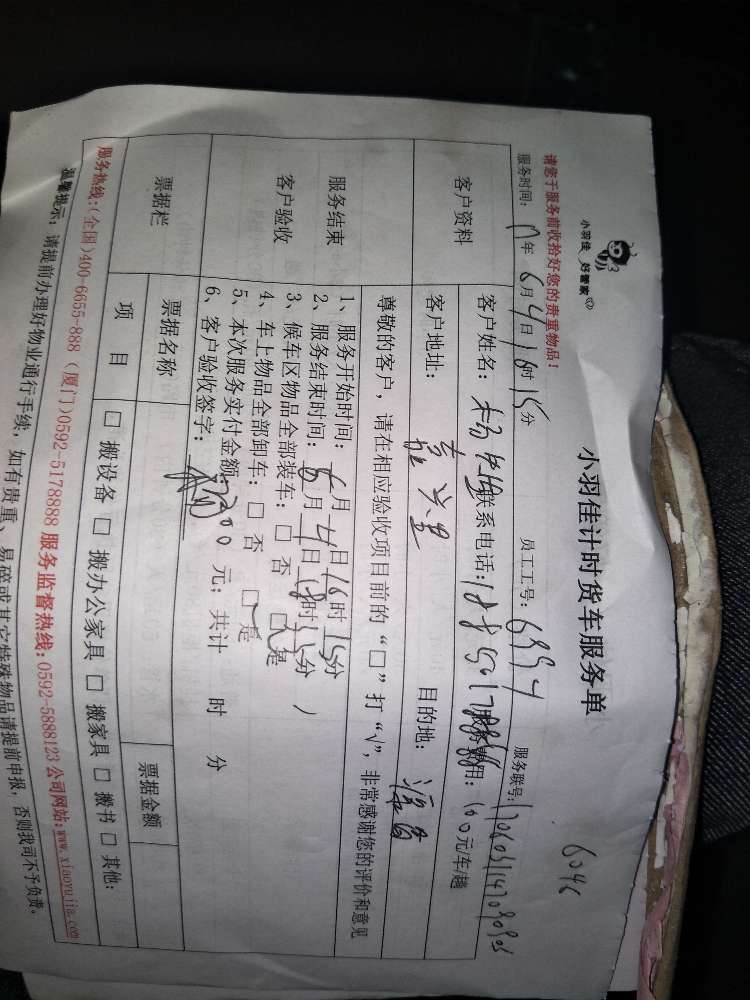 小羽佳 好管家
小羽佳计时货车服务单
6046
请您于服务前收拾好您的贵重物品！
服务时间：17年6月4日16时15分 员工工号：6994 服务联号：
客户资料
客户姓名： 联系电话： 服务费用：100元车/趟
客户地址：嘉兴里 目的地：
尊敬的客户，请在相应验收项目前的“□”打“√”，非常感谢您的评价和意见
服务结束
客户验收
1、服务开始时间： 月 日16时15分
2、服务结束时间：6月4日18时15分
3、候车区物品全部装车：□ 否 □是
4、车上物品全部卸车：□ 否 □是
5、本次服务实付金额： 元；共计 时 分
6、客户验收签字：
票据栏
票据名称 票据金额
项 目 □ 搬设备 □ 搬办公家具 □ 搬家具 □ 搬书 □ 其他：
服务热线：(全国)400-6655-888 (厦门)0592-5178888 服务监督热线：0592-5888123 公司网站：www.xiaoyujia.com
温馨提示：请提前办理好物业通行手续，如有贵重、易碎或其它特殊物品请提前申报，否则我司不予负责。